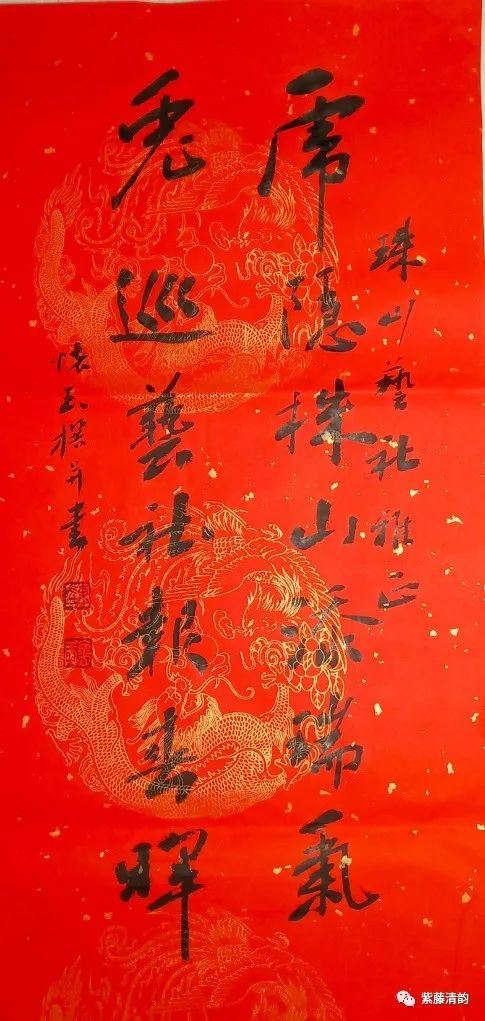 珠山藝社雅正
虎隐珠山添瑞氣
兎巡藝社報春暉
怀玉撰并書
紫藤清韵